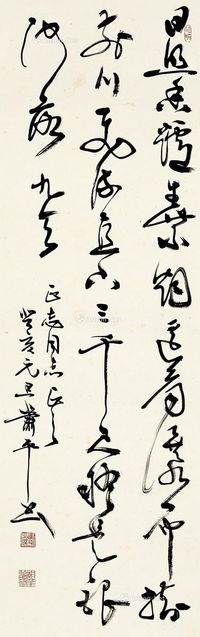 日照香炉生紫烟遥看瀑布挂
前川飞流直下三千尺疑是银
河落九天
正志同志正之
癸亥元旦萧平书